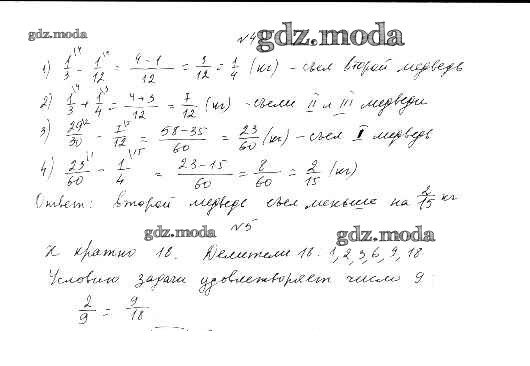 gdz.moda №4 gdz.moda
1) 1/3 \4 - 1/12 \1 = 4-1/12 = 3/12 = 1/4 (кг) - съел второй медведь
2) 1/3 \4 + 1/4 \3 = 4+3/12 = 7/12 (кг) - съели II и III медведи
3) 29/30 \2 - 7/12 \5 = 58-35/60 = 23/60 (кг) - съел I медведь
4) 23/60 \1 - 1/4 \15 = 23-15/60 = 8/60 = 2/15 (кг)
Ответ: второй медведь съел меньше на 2/15 кг
gdz.moda №5 gdz.moda
х кратно 18. Делители 18: 1, 2, 3, 6, 9, 18
Условию задачи удовлетворяет число 9:
2/9 = 9/18